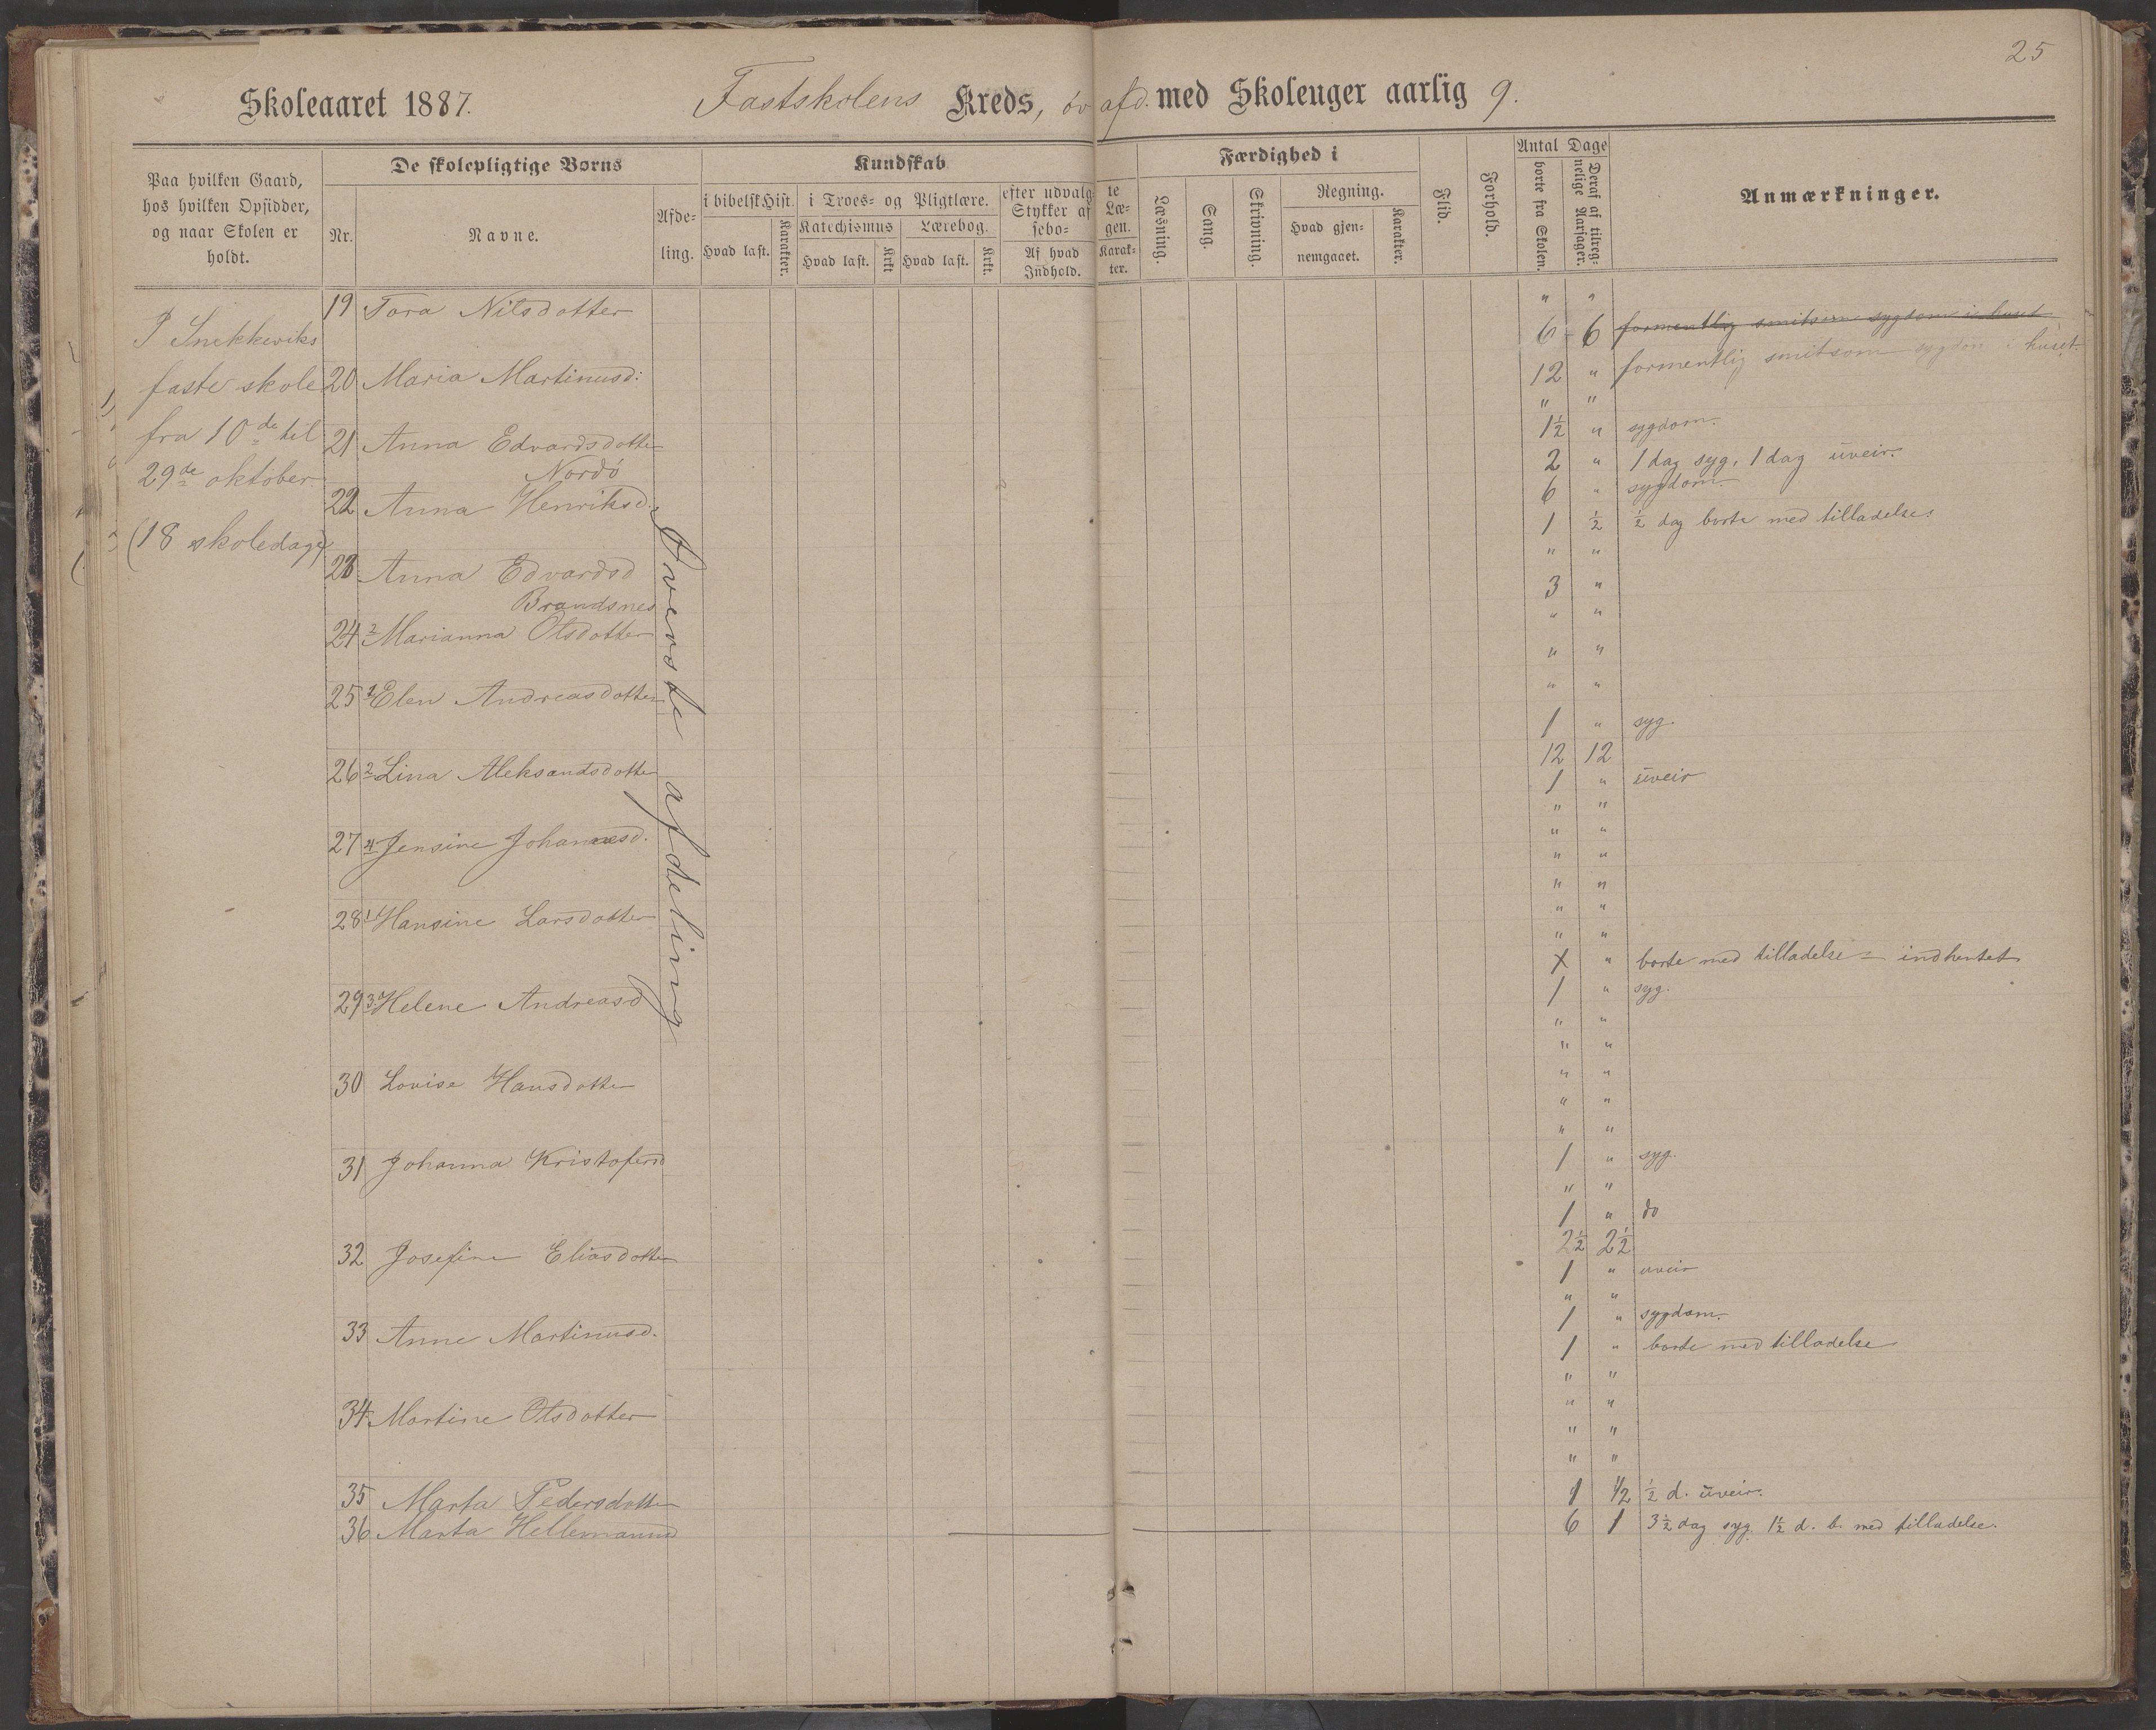 25
Skoleaaret 1887. Fastskolens Kreds, öv afd. med Skoleuger aarlig 9.
Paa hvilken Gaard,
hos hvilken Opsidder,
og naar Skolen er
holdt.
De skolepligtige Børns
Nr.
Navne.
Afde-
ling.
Kundskab
i bibelsk Hist.
Hvad læst.
Karakter.
i Troes- og Pligtlære.
Katechismus
Hvad læst.
Krkt.
Lærebog.
Hvad læst.
Krkt.
efter udvalg-
te
Stykker af
Læ-
sebo-
gen.
Af hvad
Indhold.
Karak-
ter.
Færdighed i
Læsning.
Sang.
Skrivning.
Regning.
Hvad gjen-
nemgaaet.
Karakter.
Flid.
Forhold.
Antal Dage
borte fra Skolen.
Deraf af tilreg-
nelige Aarsager.
Anmærkninger.
I Snekkeviks
faste skole
fra 10de til
29de oktober
(18 skoledage)
Øverste afdeling
19 Tora Nilsdotter
20 Maria Martinusd:
21 Anna Edvardsdotter
Nordö
22 Anna Henriksd.
23 Anna Edvardsd
Brandsnes
24 2 Marianna Olsdotter
25 1 Elen Andreasdotter
26 2 Lina Aleksandsdotter
27 4 Jensine Johannesd.
28 1 Hansine Larsdotter
29 3 Helene Andreasd
30 Lovise Hansdotter
31 Johanna Kristofersd
32 Josefine Eliasdotter
33 Anne Martinusd.
34 Martine Olsdotter
35 Marta Pedersdotter
36 Marta Hellemannsd
" "
6 6 formentlig smitsom sygdom i huset
12 " formentlig smitsom sygdom i huset.
" "
1½ " sygdom.
2 " 1 dag syg, 1 dag uveir.
6 " sygdom.
1 ½ ½ dag borte med tilladelse.
" "
3 "
" "
" "
" "
1 " syg.
12 12
1 " uveir
" "
" "
" "
" "
" "
" "
X " borte med tilladelse = indhentet
1 " syg.
" "
" "
" "
" "
" "
1 " syg.
" "
1 " do
2½ 2½
1 " uveir
" "
1 " sygdom.
1 " borte med tilladelse
" "
" "
" "
" "
1 1/2 ½ d. uveir.
6 1 3½ dag syg. 1½ d. b. med tilladelse.